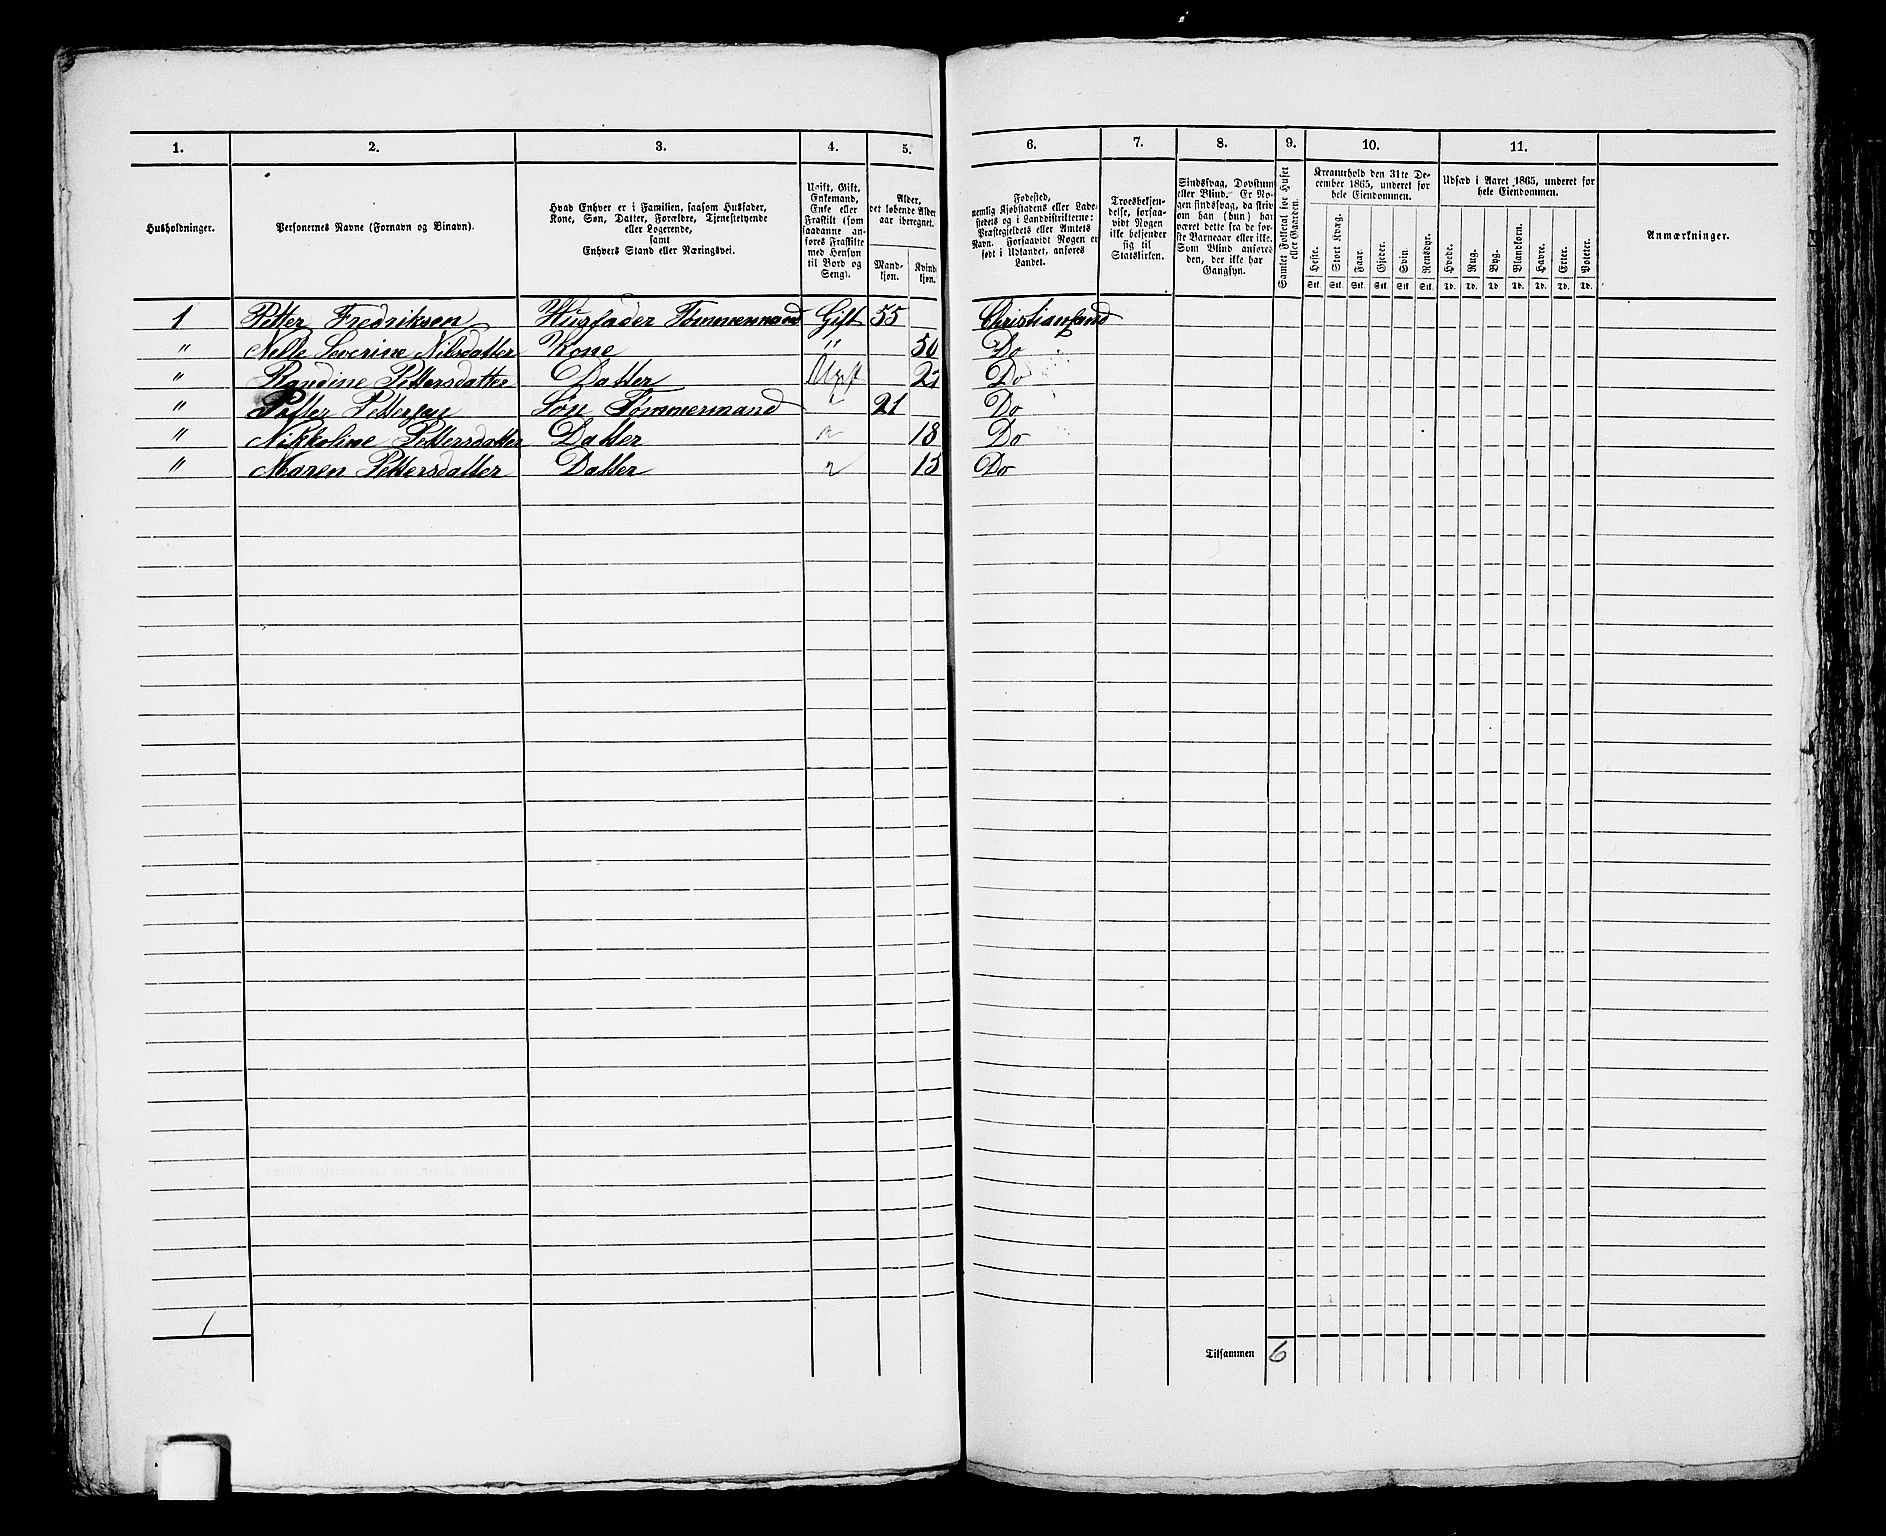 1. 2. 3. 4. 5. 6. 7. 8. 9. 10. 11.
Husholdninger.
Personernes Navne (Fornavn og Binavn).
Hvad Enhver er i Familien, saasom Husfader,
Kone, Søn, Datter, Forældre, Tjenestetyende
eller Logerende,
samt
Enhvers Stand eller Næringsvei.
Ugift, Gift,
Enkemand,
Enke eller
Fraskilt (som
saadanne an-
føres Fraskilte
med Hensyn
til Bord og
Seng).
Alder,
det løbende Alder
aar iberegnet.
Mand-
kjøn.
Kvind
kjøn.
Fødested,
nemlig Kjøbstadens eller Lade-
stedets og i Landdistrikterne:
Præstegjeldets eller Amtets
Navn. Forsaavidt Nogen er
født i Udlandet, anføres
Landet.
Troesbekjen-
delse, forsaa-
vidt Nogen
ikke bekjender
sig til
Statskirken.
Sindssvag, Døvstum
eller Blind. Er No-
gen sindssvag, da skriv
om han (hun) har
været dette fra de før-
ste Barneaar eller ikke.
Som Blind anføres
den, der ikke har
Gangsyn.
Samlet Folketal for Huset
eller Gaarden.
Kreaturhold den 31te De-
cember 1865, underet for
hele Eiendommen.
Heste. Stort Kvæg. Faar. Gjeder. Svin. Rensdyr.
Stk. Stk. Stk. Stk. Stk. Stk.
Udsæd i Aaret 1865, underet for
hele Eiendommen.
Hvede. Rug. Byg. Blandkorn. Havre. Erter. Poteter.
Td. Td. Td. Td. Td. Td. Td.
Anmærkninger.
1 Petter Fredriksen Husfader Tømmermand Gift 55 Christiansand
" Nelle Severine Nilsdatter Kone " 50 Do
" Randine Pettersdatter Datter Ugift Do
" Petter Pettersen Søn Tømmermand " 21 Do
" Nikkoline Pettersdatter Datter " 18 Do
" Maren Pettersdatter Datter " 15 Do
1
Tilsammen 6